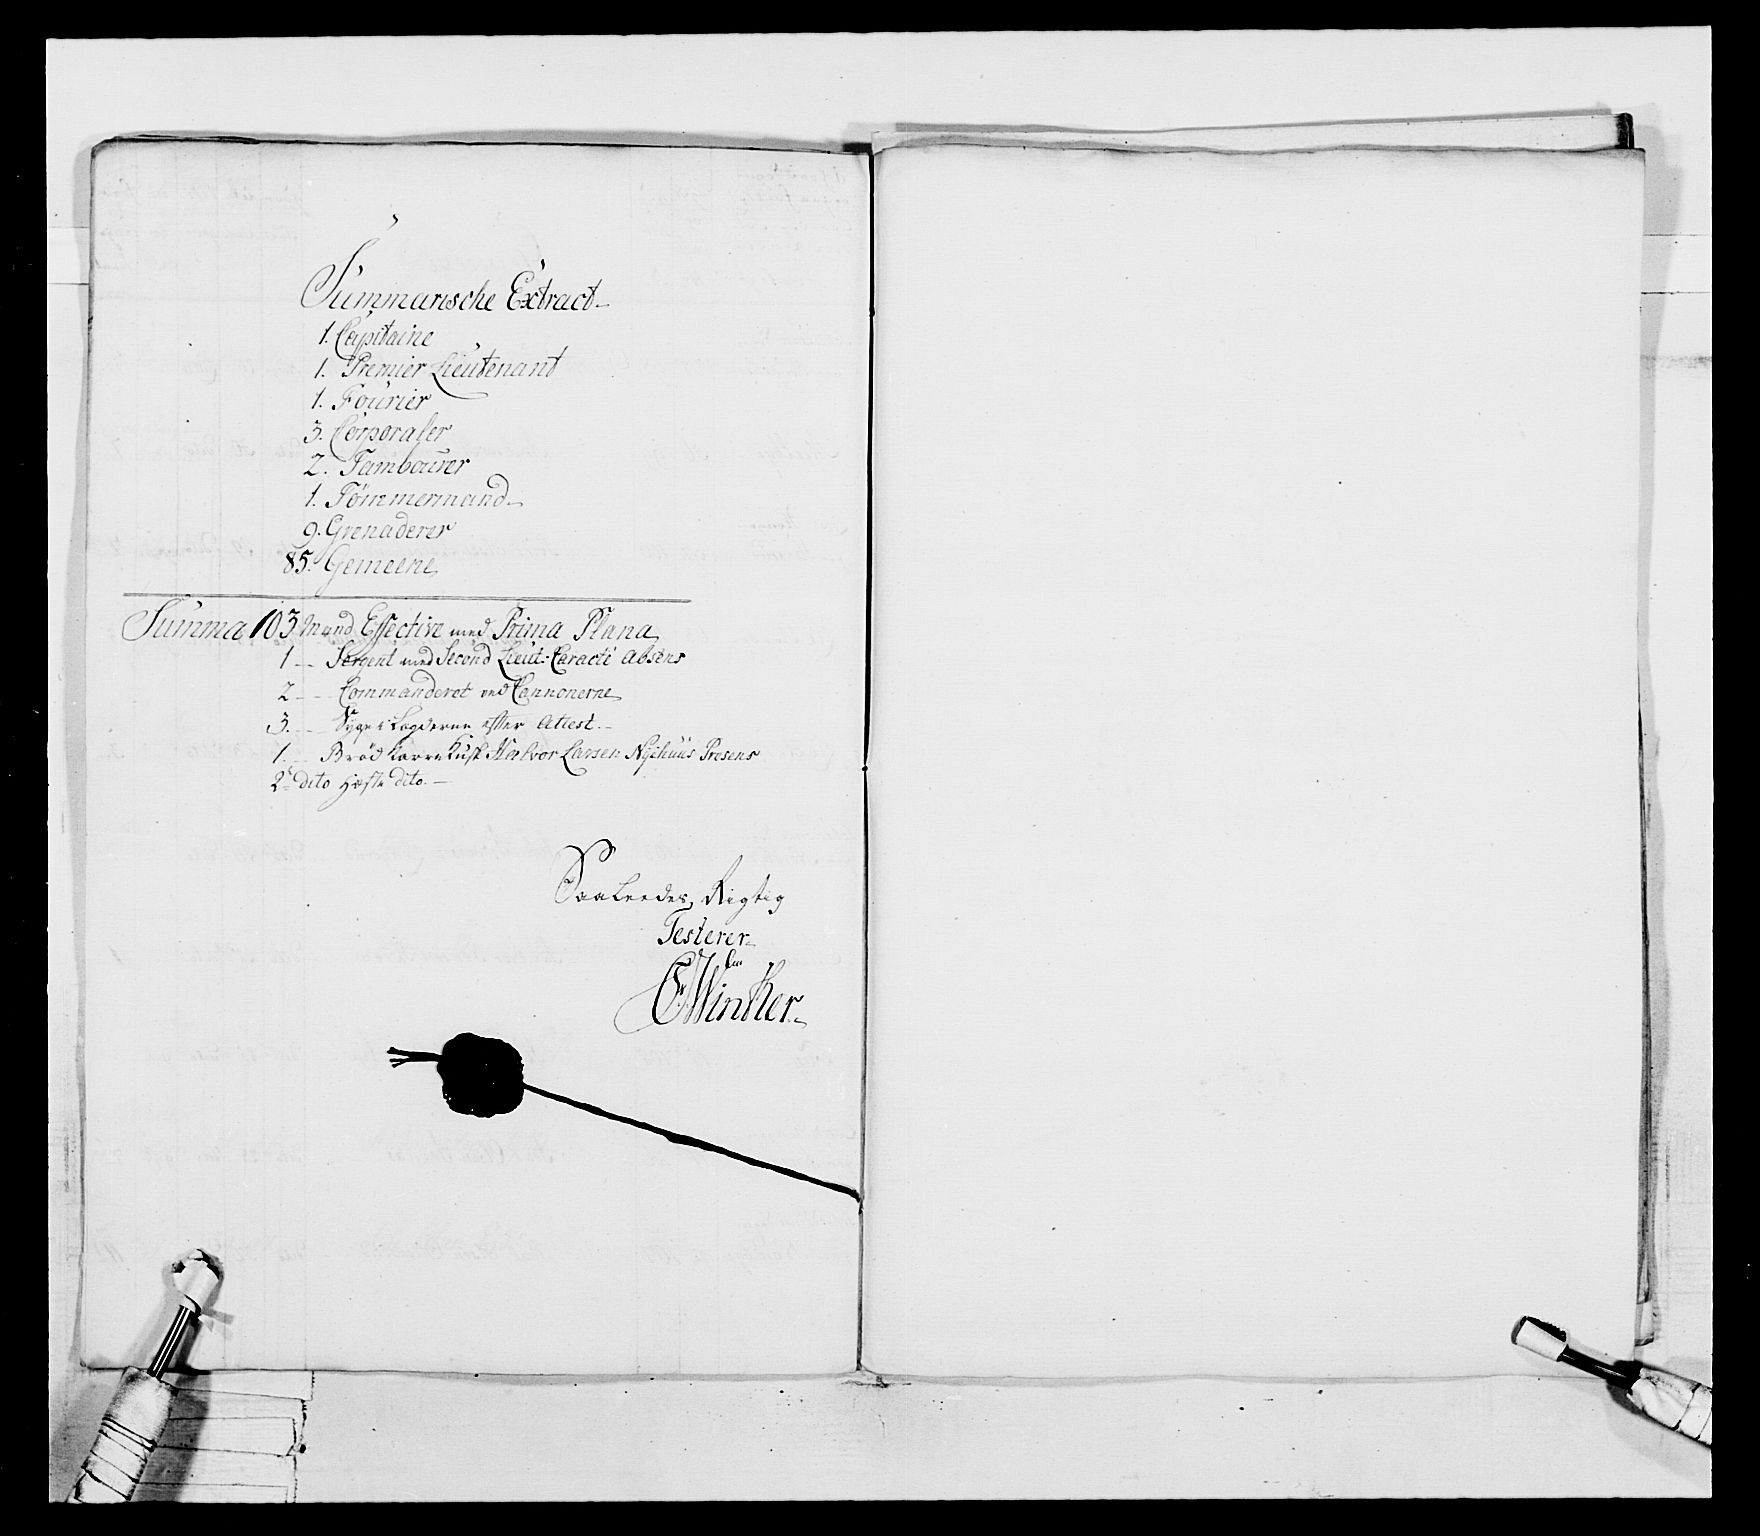 Summarische Extract
1. Capitaine
1. Premier Lieutenant
1. Fourier
3. Corporaler
2. Tambourer
1. Tömmermand
9. Grenaderer
85. Gemeene
Summa 103 Mand Effective med Prima Plana
1 Sergent med Second Lieut: Caracté absens
2 Commanderet ved Cannonerne
3. Syge i Lægderne efter Attest.
1. Brød Karre Kusk Halvor Larsen Nyehuus Presens
2de dito Heste dito.
Saaleedes Rigtig
Testerer
Winther